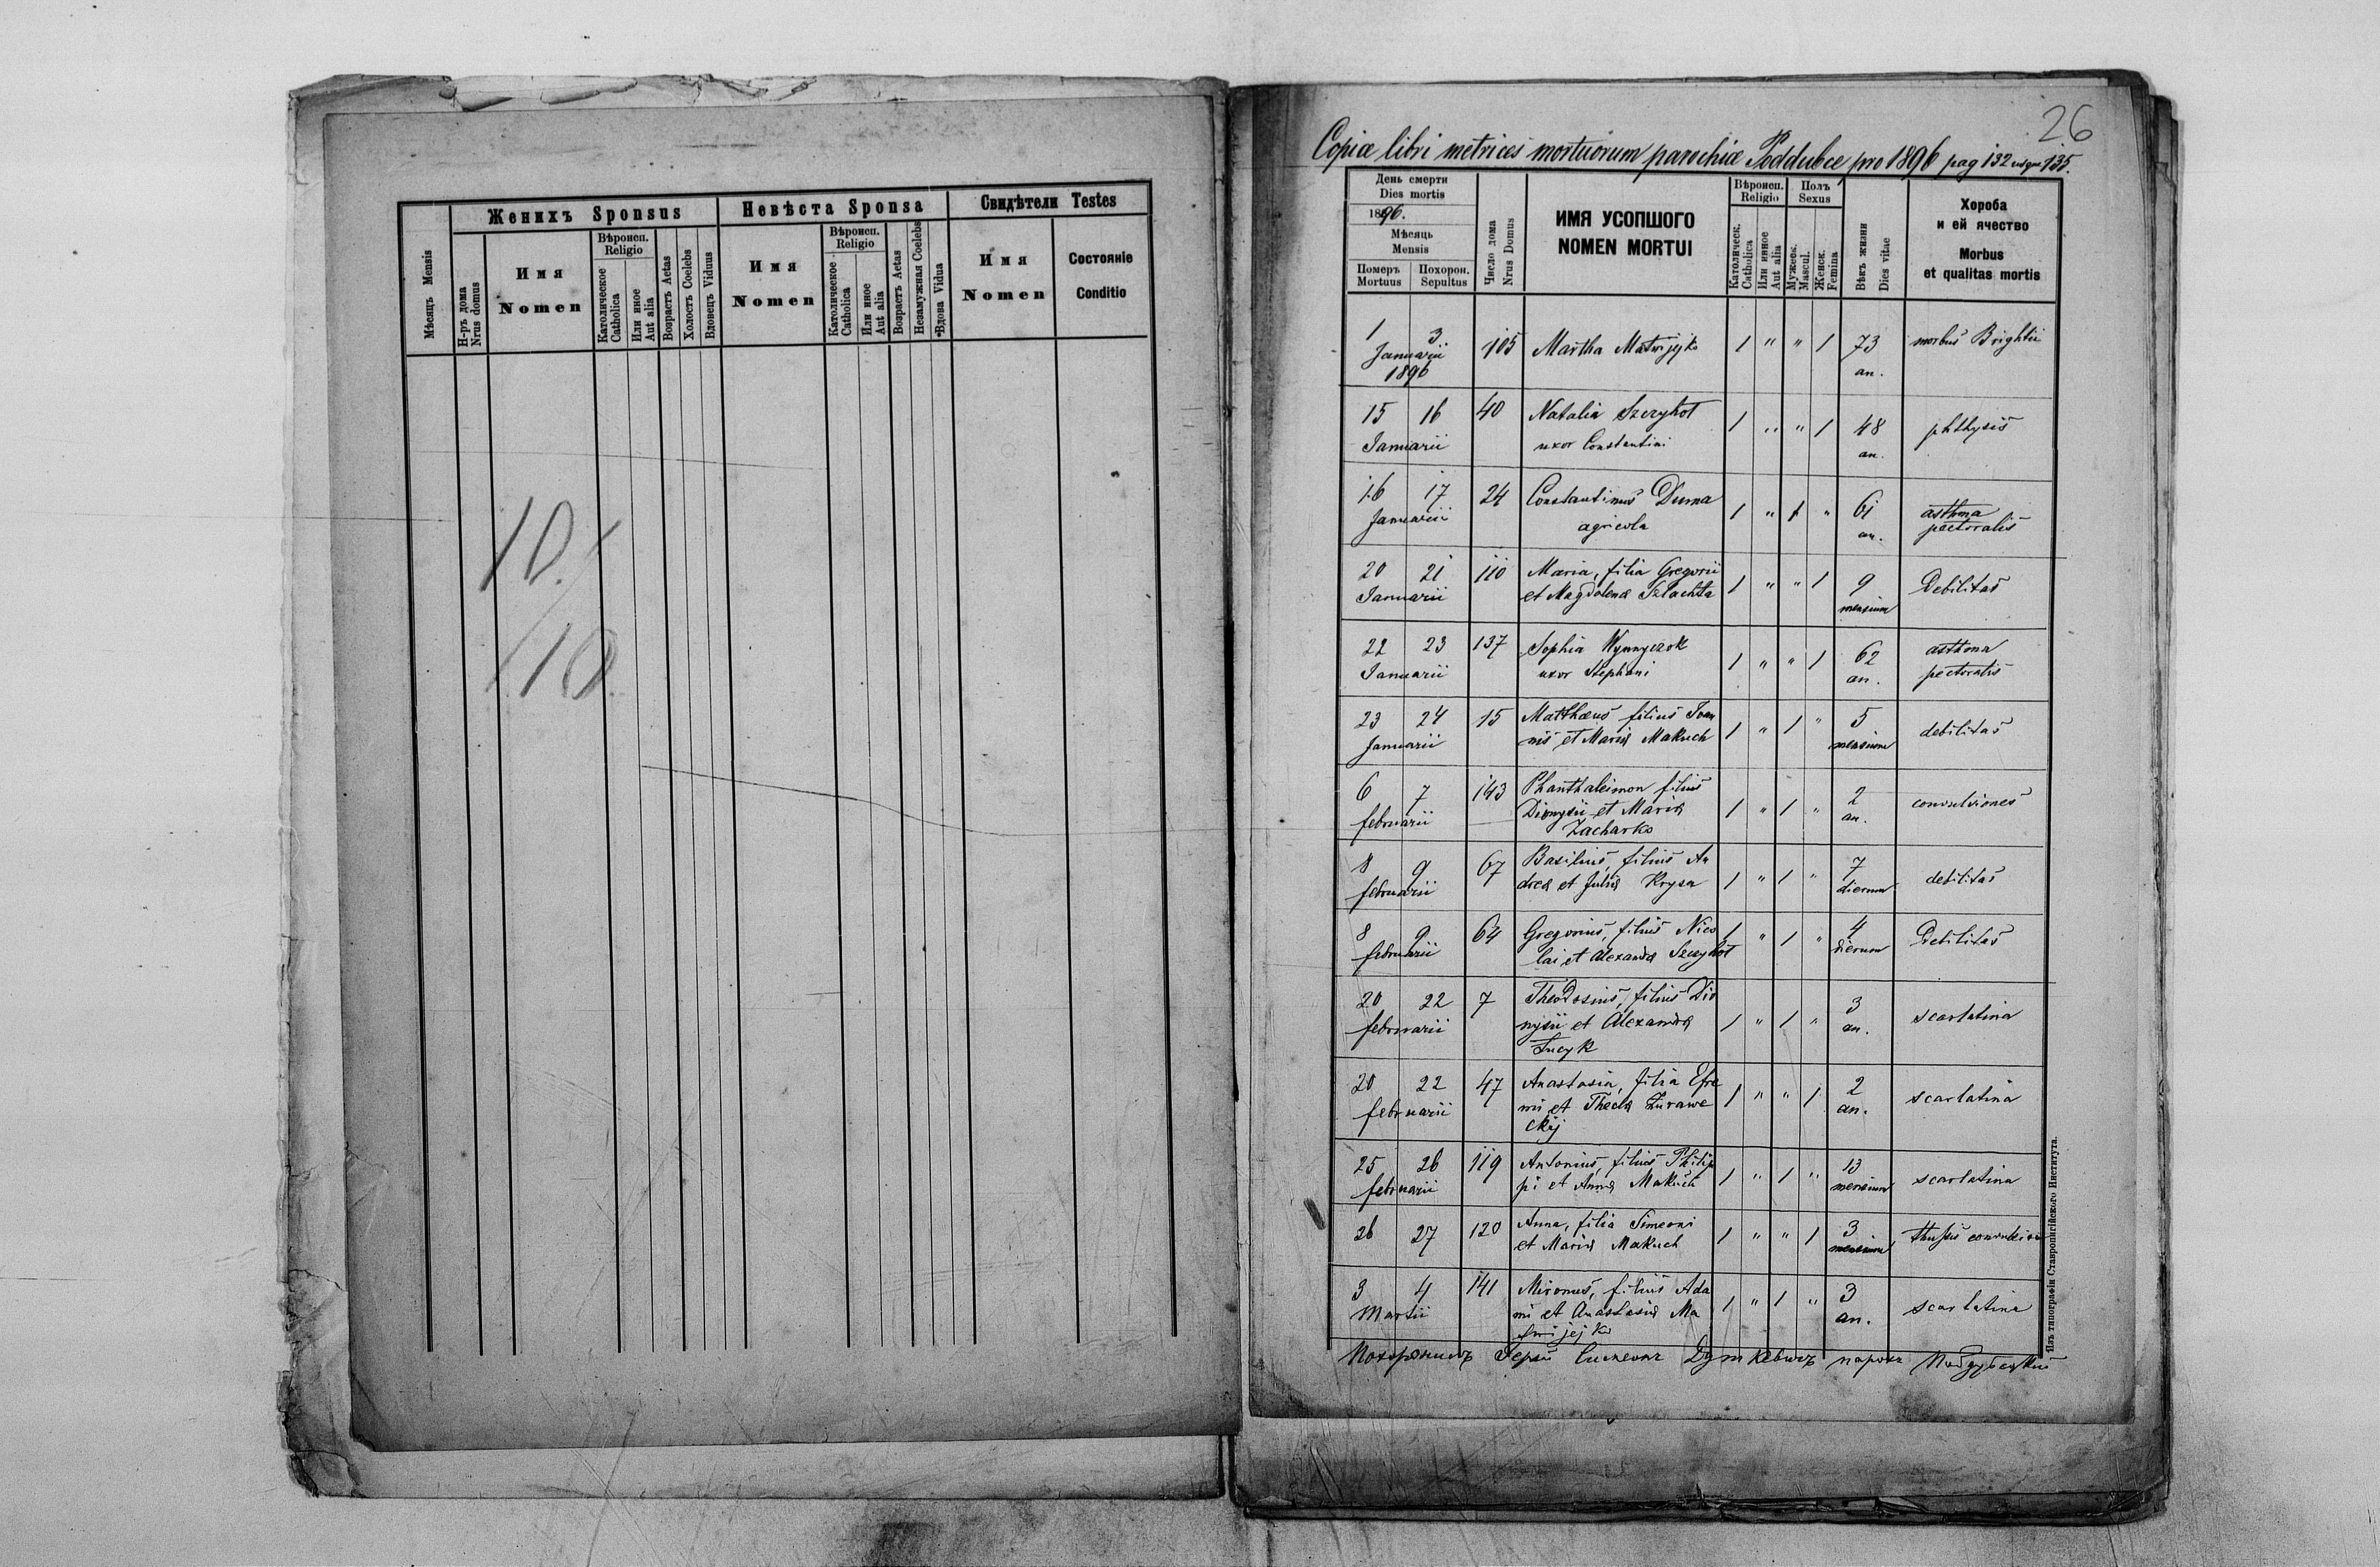 Женихъ Sponsus
Невѣста Sponsa
Свидѣтели Testes
Мѣсяцъ Mensis
Н-ръ дома
Nrus domus
Имя
Nomen
Вѣроисп.
Religio
Католическое
Catholica
Или иное
Aut alia
Возрастъ Aetas
Холостъ Coelebs
Вдовецъ Viduus
Имя
Nomen
Вѣроисп.
Religio
Католическое
Catholica
Или иное
Aut alia
Возрастъ Aetas
Незамужная Coelebs
Вдова Vidua
Имя
Nomen
Состояніе
Conditio
10.
10.
26
Copiæ libri metrices mortuorum parochiæ Poddubce pro 1896 pag 132 usque 135.
День смерти
Dies mortis
1896.
Мѣсяць
Mensis
Померъ
Mortuus
Похорон.
Sepultus
Число дома
Nrus Domus
ИМЯ УСОПШОГО
NOMEN MORTUI
Вѣроисп.
Religio
Католическ.
Catholica
Или иное
Aut alia
Полъ
Sexus
Мужеск.
Mascul.
Женск.
Femina
Вѣкъ жизни
Dies vitae
Хороба
и ей ячество
Morbus
et qualitas mortis
1 3 105 Martha Matwijejko 1 " " 1 73 morbus Brightii
Januarii an.
1896
15 16 40 Natalia Szczyhot 1 " " 1 48 phthysis
Januarii uxor Constantini an.
16 17 24 Constantinus Duma 1 " 1 " 61 asthma
Januarii agricola an. pectoralis
20 21 110 Maria, filia Gregorii 1 " " 1 9 Debilitas
Januarii et Magdalenæ Szlachta mensium
22 23 137 Sophia Wynnyczok 1 " " 1 62 asthma
Januarii uxor Stephani an. pectoralis
23 24 15 Matthæus filius Joan 1 " 1 " 5 debilitas
Januarii nis et Mariæ Makuch mensium
6 7 143 Phanthaleimon filius 1 " 1 " 2 convulsiones
februarii Dionysii et Mariæ an.
Zacharko
8 9 67 Basilius, filius An 1 " 1 " 7 debilitas
februarii dreæ et Juliæ Krysa dierum
8 9 64 Gregorius, filius Nico 1 " 1 " 4 Debilitas
februarii lai et Alexandræ Szczyhot dierum
20 22 7 Theodosius, filius Dio 1 " 1 " 3 scarlatina
februarii nysii et Alexandræ an.
Lucyk
20 22 47 Anastasia, filia Efre 1 " " 1 2 scarlatina
februarii mi et Theclæ Zurawe an.
ckij
25 26 119 Antonius, filius Philip 1 " 1 " 13 scarlatina
februarii pi et Annæ Makuch mensium
26 27 120 Anna, filia Simeoni 1 " " 1 3
et Mariæ Makuch mensium
3 4 141 Mironus, filius Ada 1 " 1 " 3 scarlatina
Martii mi et Anastasiæ Ma an.
twijejko
Симеонъ парохъ Поддубецкій
Изъ типографіи Ставропигійского Института.